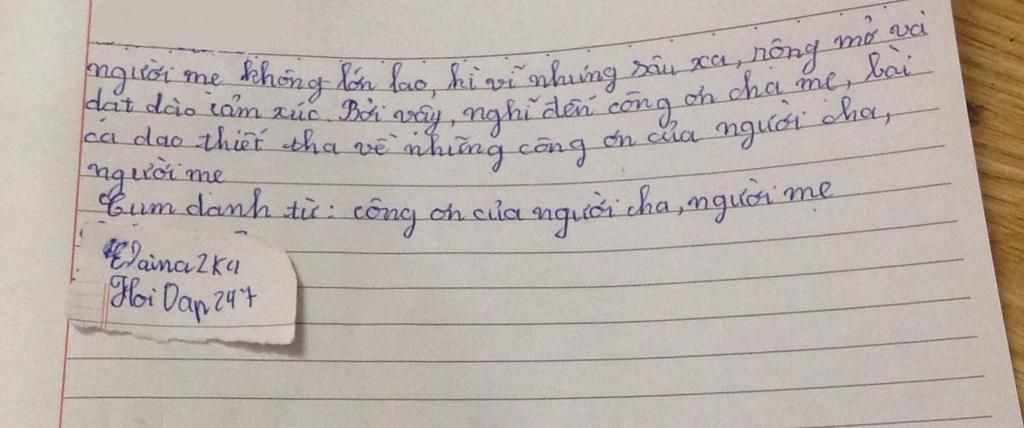 người mẹ không lớn lao, hì vĩ nhưng sâu xa, nồng mở và
dạt dào cảm xúc. Bởi vậy, nghĩ đến công ơn cha mẹ, bài
ca dao thiết tha về những công ơn của người cha,
người mẹ
Cụm danh từ: công ơn của người cha, người mẹ
Daina2k4
Hoi Dap 247